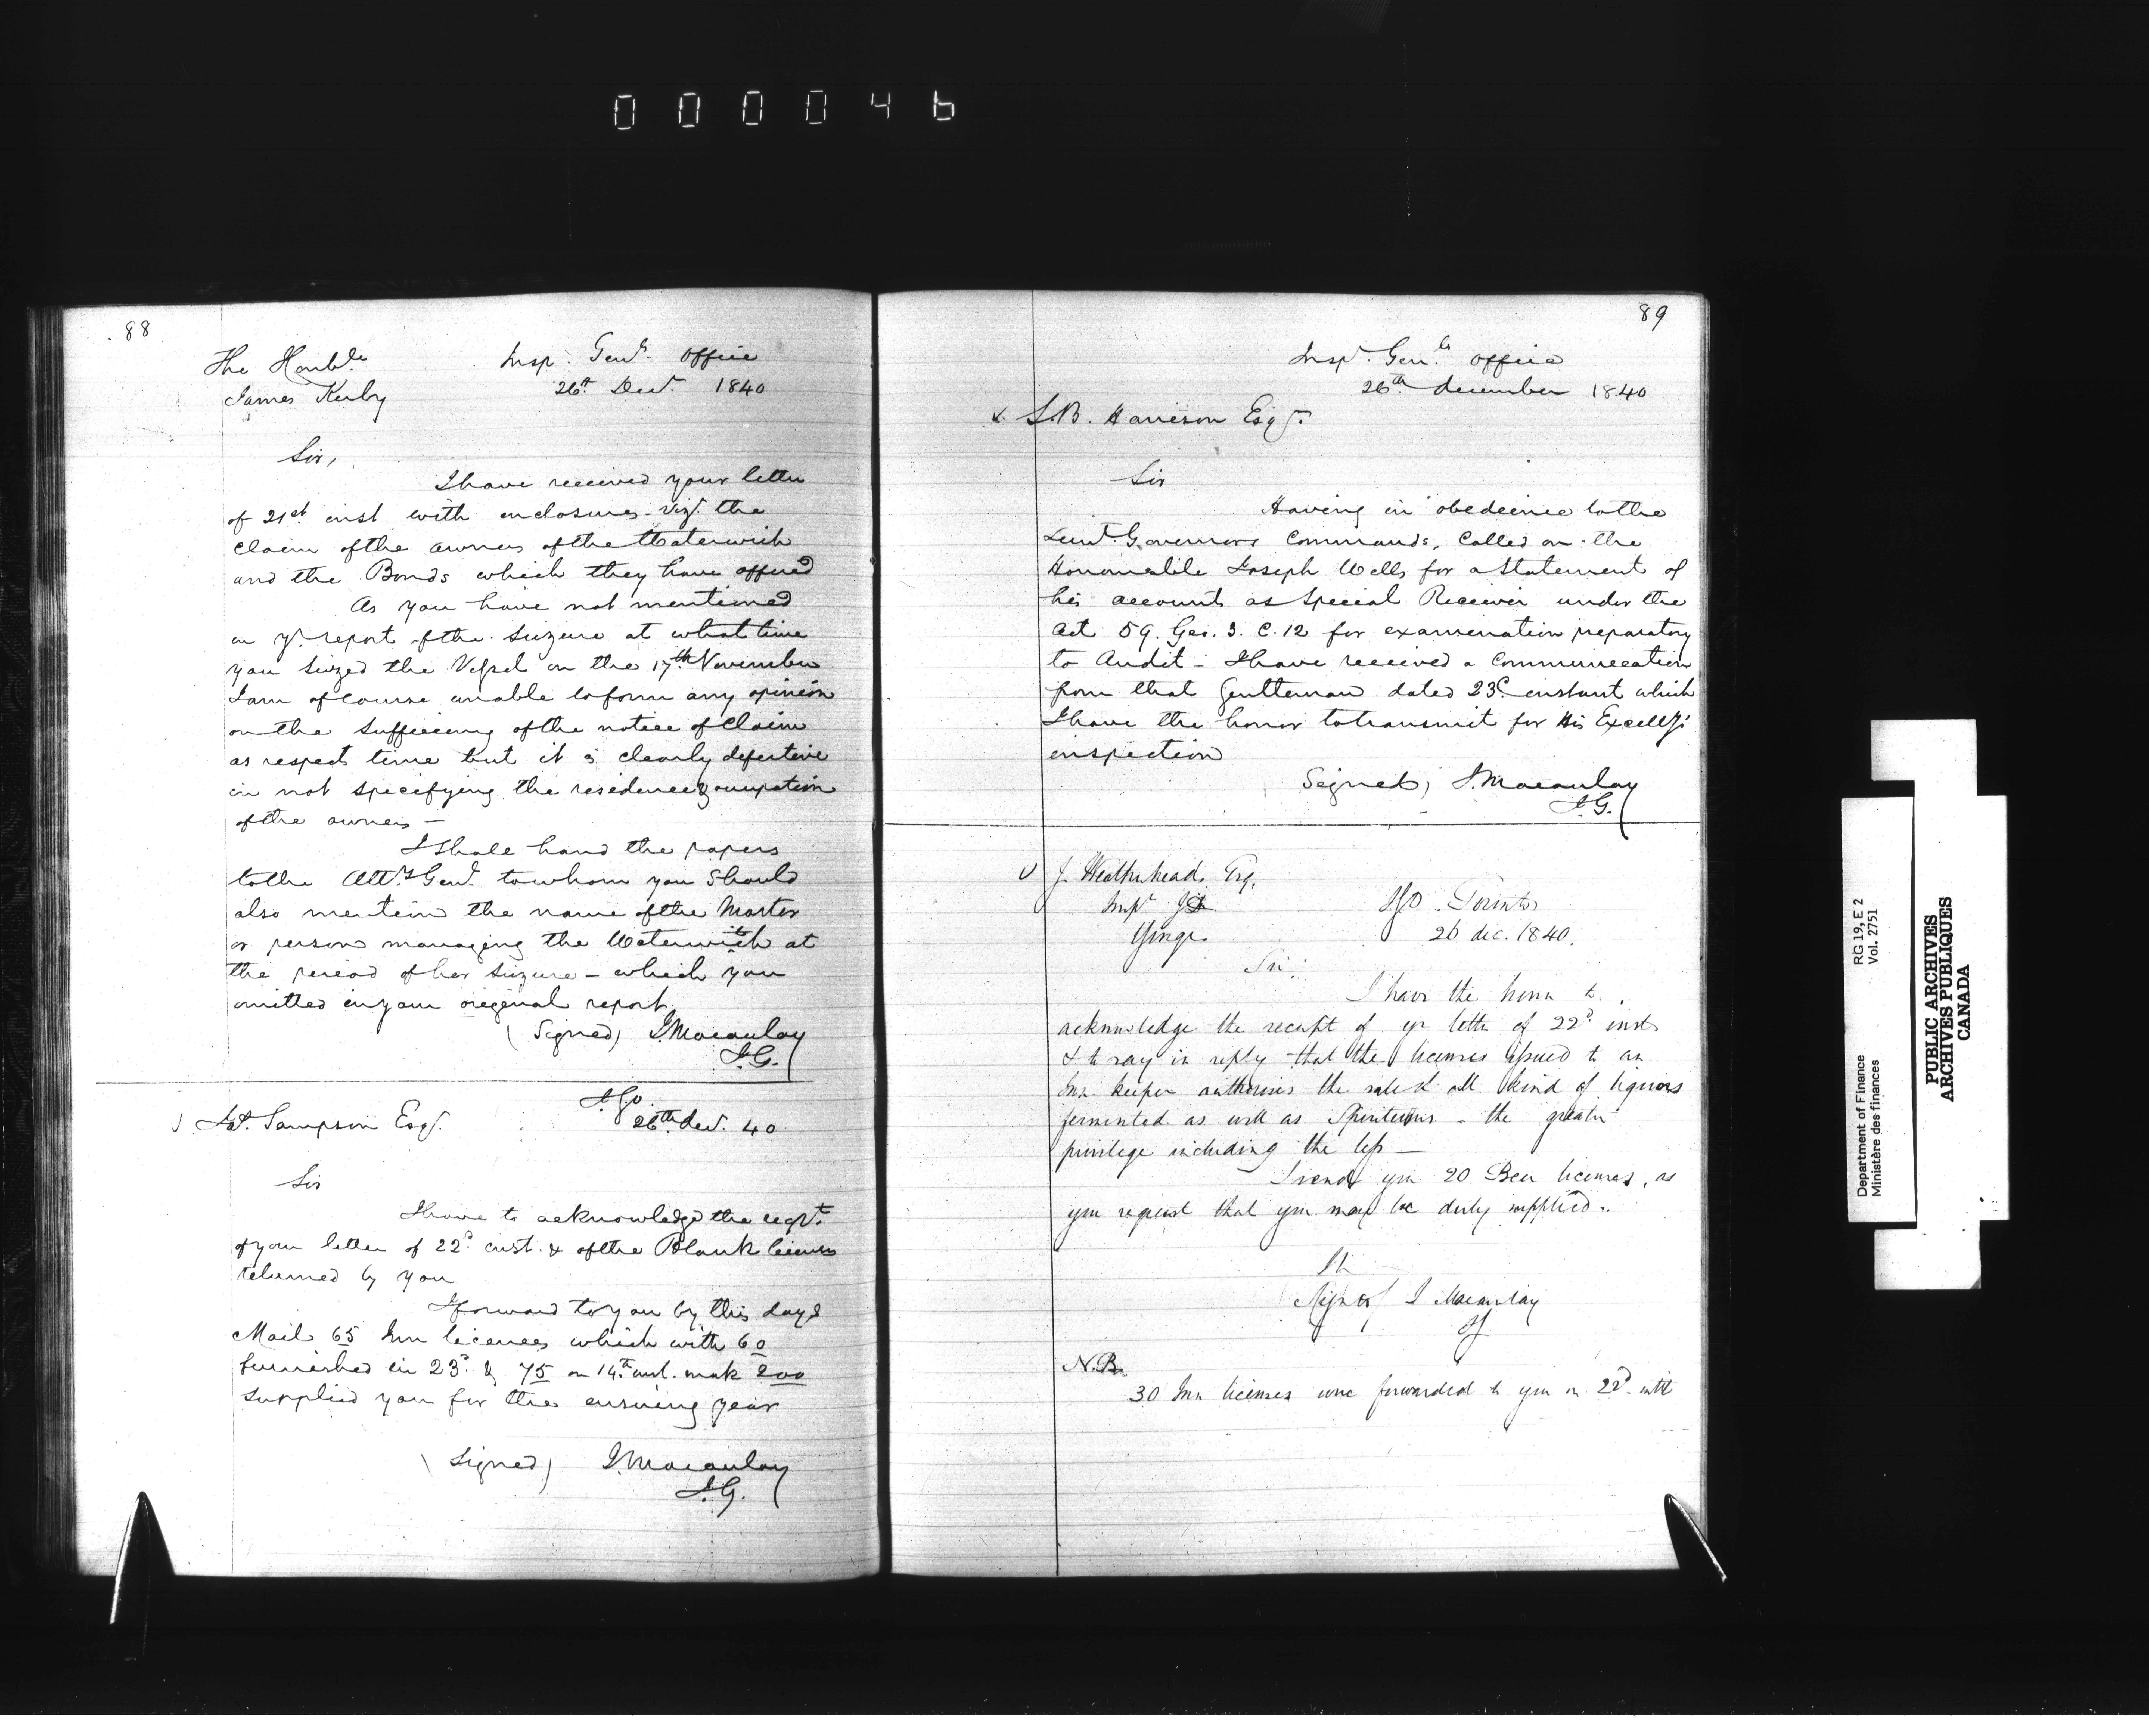 000046
88
The Honble Insp. Genls. Office
James Kerby 26th Decr. 1840
Sir,
I have received your letter
of 21st inst with enclosures - vizt. the
claim of the owners of the Waterwich
and the Bonds which they have offered
As you have not mentioned
in yr. report of the seizure at what time
you seized the Vessel on the 17th November
I am of course unable to form any opinion
on the sufficiency of the notice of claim
as respect time but it is clearly defective
in not specifying the residence & occupation
of the owners -
I shall hand the papers
to the Atty Genl. to whom you should
also mention the name of the Master
or person managing the Waterwitch at
the period of her seizure - which you
omitted in your original report.
(Signed) J. Macaulay
I.G.
I.G.O.
Sampson Esqr. 26th Decr. 40
Sir
I have to acknowledge the recpt.
of your letter of 22d inst. & of the Blank licenses
returned by you
I forward to you by this days
Mail 65 Inn licences which with 60
furnished in 23d. & 75 on 14th inst. make 200
supplied you for the ensuing year
(Signed) J. Macaulay
I.G.
89
Inspr. Genls. Office
26th December 1840
S.B. Harrison Esqr.
Sir
Having in obedience to the
Lieut. Governors Commands, Called on the
Honourable Joseph Wells for a Statement of
his accounts as Special Receiver under the
Act 59. Geo. 3. C. 12 for examination preparatory
to Audit - I have received a communication
from that Gentleman dated 23d. instant which
I have the honor to transmit for His Excelly's
inspection
Signed, J. Macaulay
I.G.
J. Weatherhead, Esq.
Inspr
IGO. Toronto
26 dec. 1840.
Sir.
I have the honor to
acknowledge the receipt of yr letter of 22d inst
& to say in reply that the licenses issued to an
Inn keeper authorises the sale of all kind of liquors
fermented as well as Spirituous - the greater
privilege including the less -
I send you 20 Beer licenses, as
you request that you may be duly supplied.
Signed J Macaulay
N.B.
30 Inn licenses were forwarded to you on 22d ult
Department of Finance
Ministère des finances
RG 19, E 2
Vol. 2751
PUBLIC ARCHIVES
ARCHIVES PUBLIQUES
CANADA